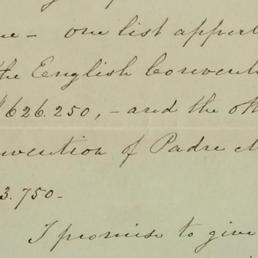 one list appert
the English Convent
626.250, - and the oth
vention of Padre M
3.750 -
I promise to give